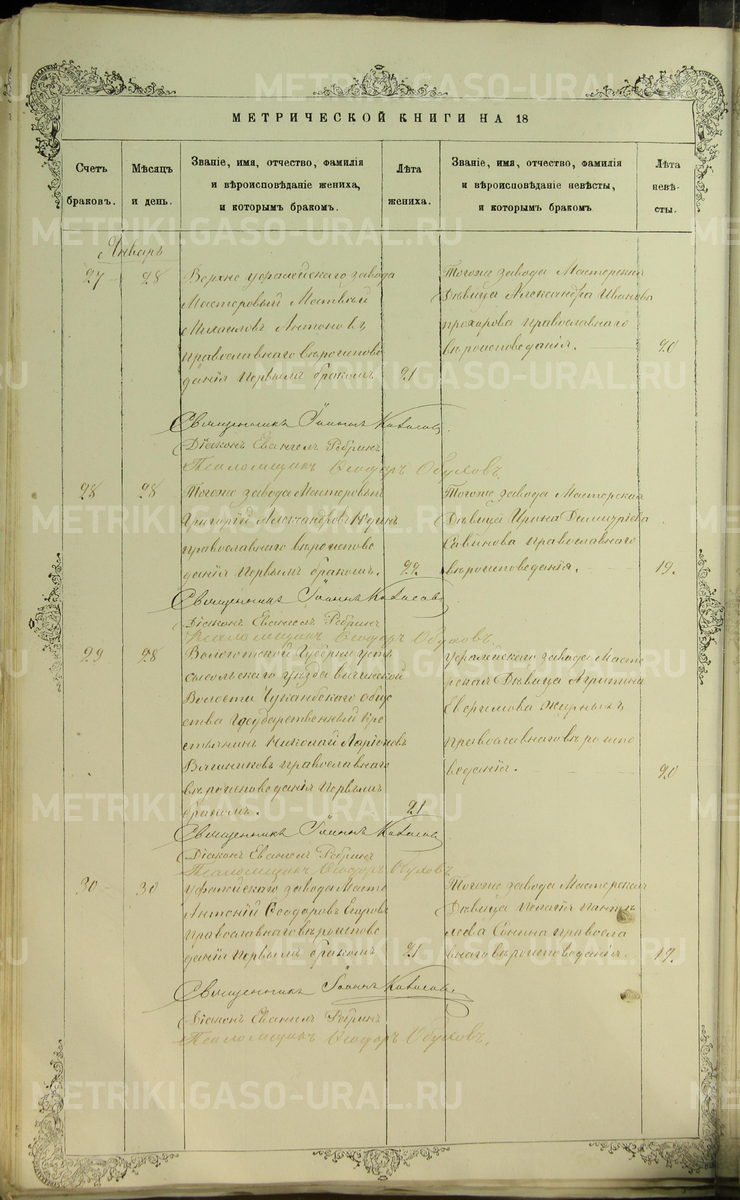 МЕТРИЧЕСКОЙ КНИГИ НА 18
Счетъ браковъ.
Мѣсяцъ и день.
Званіе, имя, отчество, фамилія и вѣроисповѣданіе жениха, и которымъ бракомъ.
Лѣта жениха.
Званіе, имя, отчество, фамилія и вѣроисповѣданіе невѣсты, и которымъ бракомъ
Лѣта невѣсты.
Январь
27
28
Верхне уфалейскаго завода
Мастеровый Матвей
Михаиловъ Антоновъ
православнаго вѣроиспове
данія первымъ бракомъ
21
Тогоже завода Мастерская
Дѣвица Александра Иванова
прохорова православнаго
вѣроисповеданія.
20
Священникъ Іоаннъ
Діаконъ Евангелъ Ребринъ
Псаломщикъ Ѳеодоръ Обуховъ
28
28
Тогоже завода Мастеровый
Григорій Александровъ Юдинъ
православнаго вѣроиспове
данія первымъ бракомъ.
22
Тогоже завода Мастерская
Дѣвица Ирина Димитріева
Савинова православнаго
вѣроисповеданія.
19.
Священникъ Іоаннъ
Діаконъ Евангелъ Ребринъ
Псаломщикъ Ѳеодоръ Обуховъ
29
28
Вологотской Губерніи Усть
сысольскаго уѣзда
Волости обще
ства Государственный кре
стьянинъ Николай Ларіоновъ
православнаго
вѣроисповеданія первымъ
бракомъ.
21
Уфалейскаго завода Масте
рская Дѣвица
Жирныхъ
православнаго вѣроиспо
веданія.
20
Священникъ Іоаннъ
Діаконъ Евангелъ Ребринъ
Псаломщикъ Ѳеодоръ Обуховъ
30
30
Уфалейскаго завода Масте
Антоній Ѳеодоровъ Егоровъ
православнаго вѣроиспове
данія первымъ бракомъ
21
Тогоже завода Мастерская
Дѣвица Пелагія Пантъ
леева Сонина правосла
внаго вѣроисповеданія.
19.
Священникъ Іоаннъ
Діаконъ Евангелъ Ребринъ
Псаломщикъ Ѳеодоръ Обуховъ.
METRIKI.GASO-URAL.RU